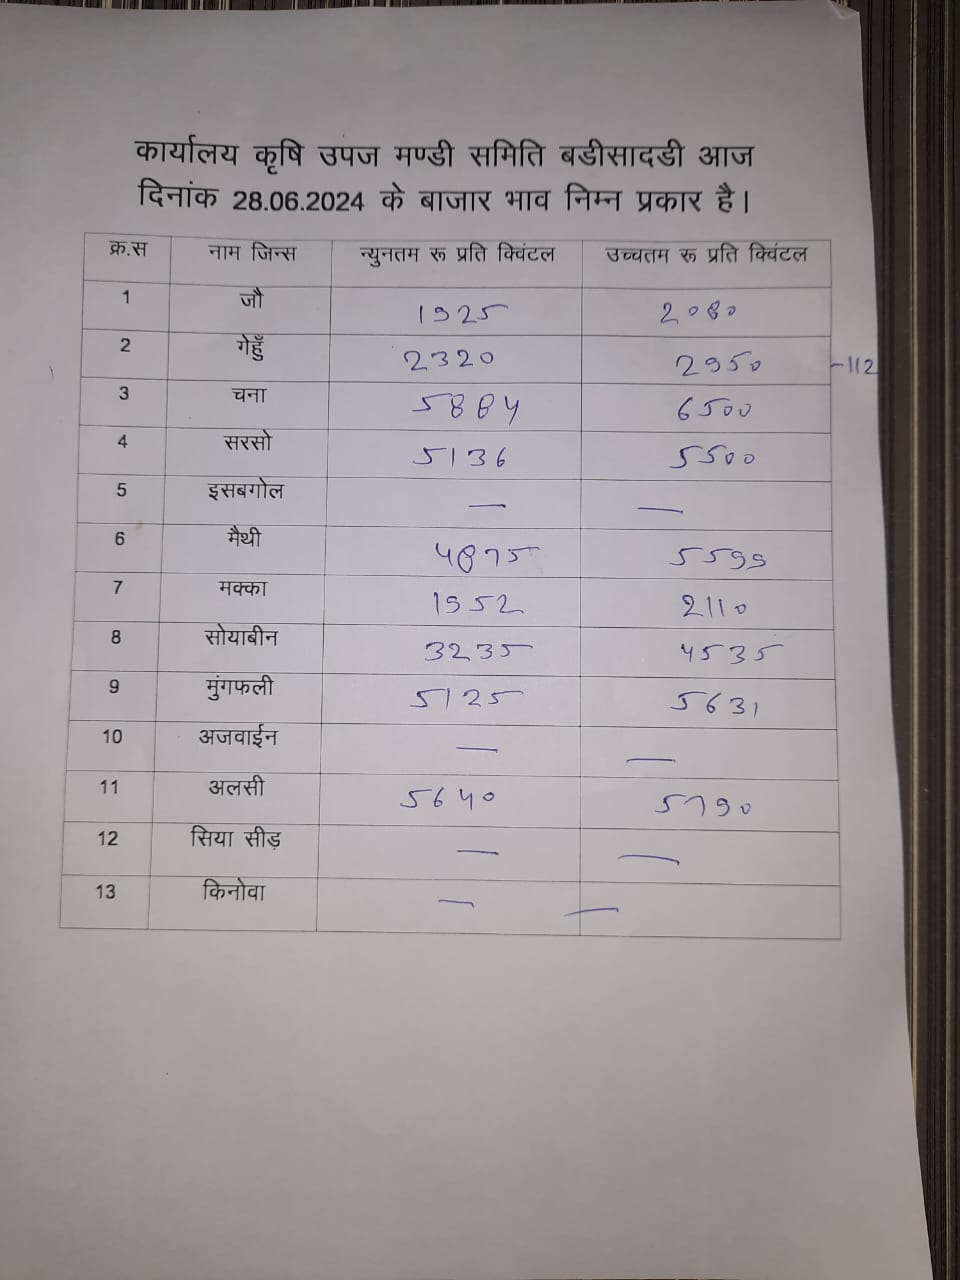 कार्यालय कृषि उपज मण्डी समिति बडीसादडी आज
दिनांक 28.06.2024 के बाजार भाव निम्न प्रकार है।
क्र.स नाम जिन्स न्युनतम रू प्रति क्विंटल उच्चतम रू प्रति क्विंटल
1 जौ 1925 2080
2 गेहुँ 2320 2950 -112
3 चना 5884 6500
4 सरसो 5136 5500
5 इसबगोल — —
6 मैथी 4875 5599
7 मक्का 1952 2110
8 सोयाबीन 3235 4535
9 मुंगफली 5125 5631
10 अजवाईन — —
11 अलसी 5640 5790
12 सिया सीड़ — —
13 किनोवा — —